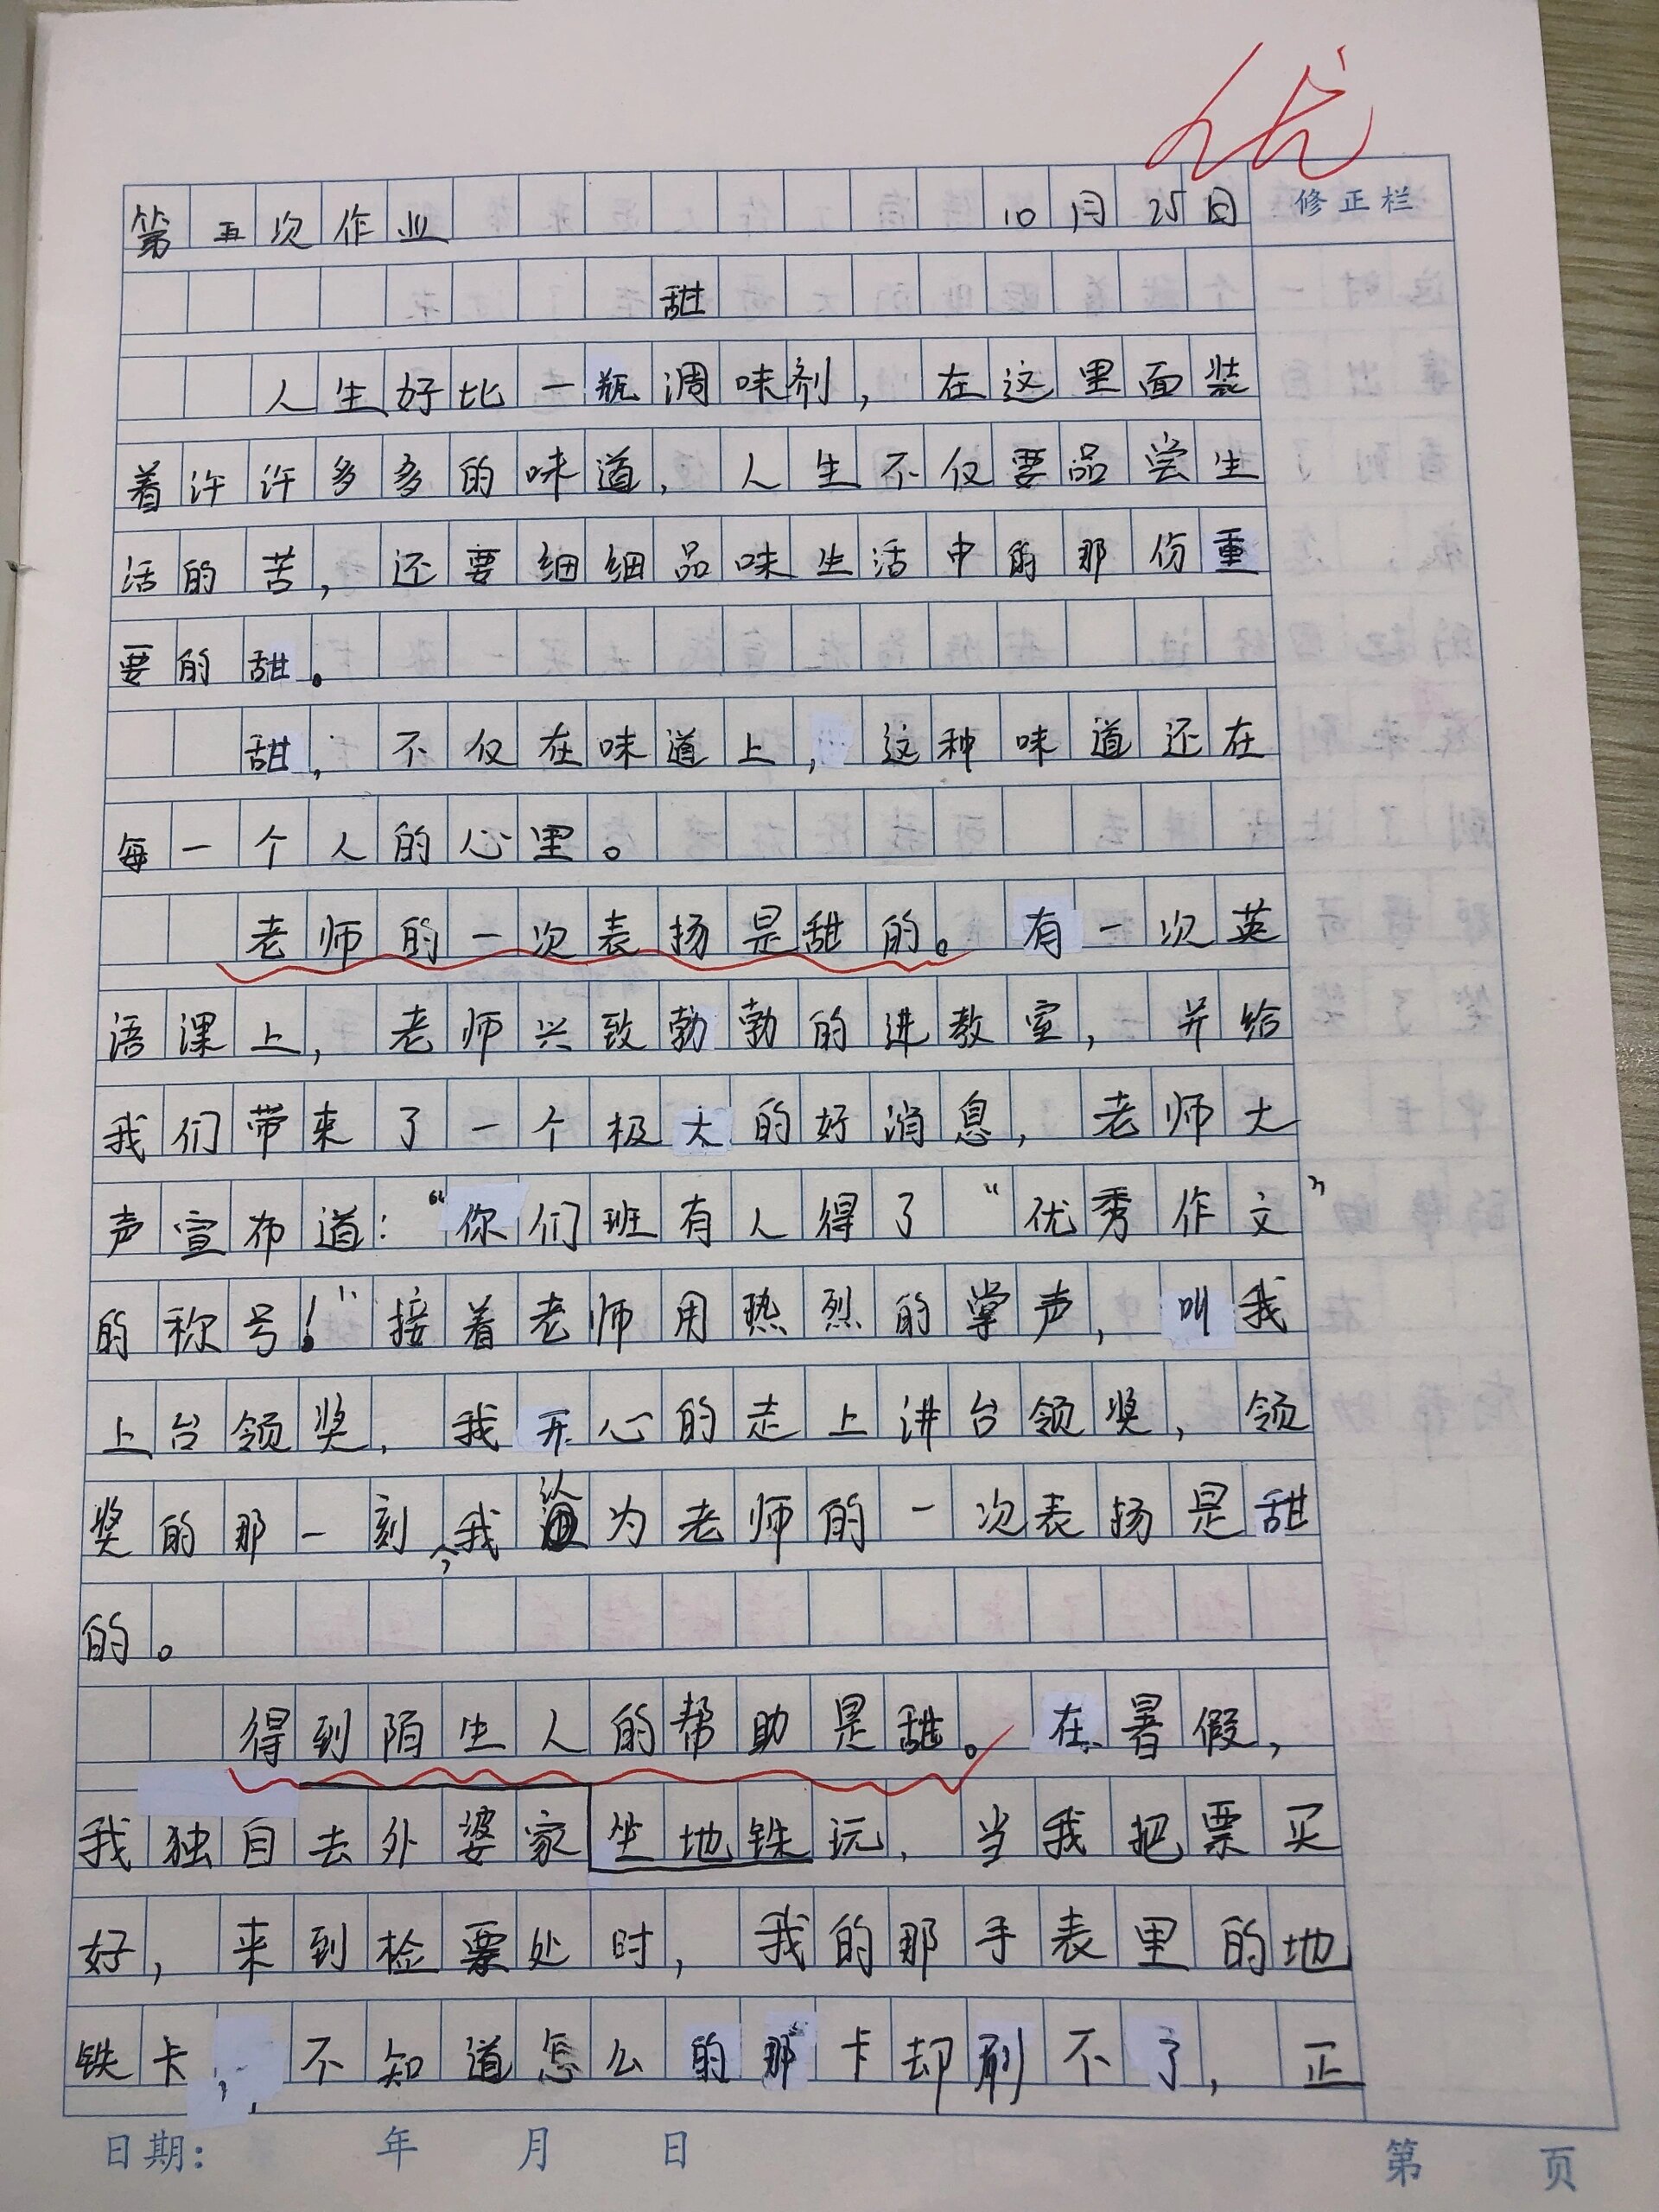 优
第五次作业 10月25日 修正栏
甜
人生好比一瓶调味剂，在这里面装
着许许多多的味道，人生不仅要品尝生
活的苦，还要细细品味生活中的那份重
要的甜。
甜，不仅在味道上，这种味道还在
每一个人的心里。
老师的一次表扬是甜的。有一次英
语课上，老师兴致勃勃的进教室，并给
我们带来了一个极大的好消息，老师大
声宣布道：“你们班有人得了“优秀作文”
的称号！”接着老师用热烈的掌声，叫我
上台领奖，我开心的走上讲台领奖，领
奖的那一刻，我认为老师的一次表扬是甜
的。
得到陌生人的帮助是甜。在暑假，
我独自去外婆家坐地铁玩，当我把票买
好，来到检票处时，我的那手表里的地
铁卡，不知道怎么的那卡却刷不了，正
日期： 年 月 日 第 页